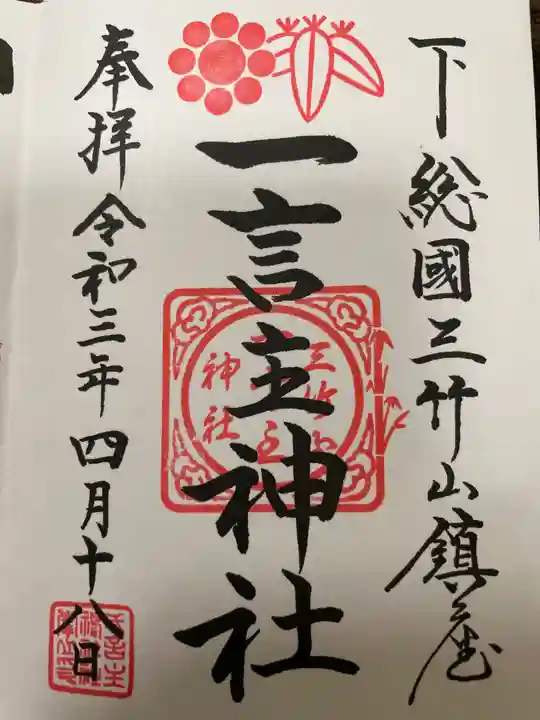 下総國三竹山鎮座
一言主神社
奉拝令和三年四月十八日
三竹山
神社